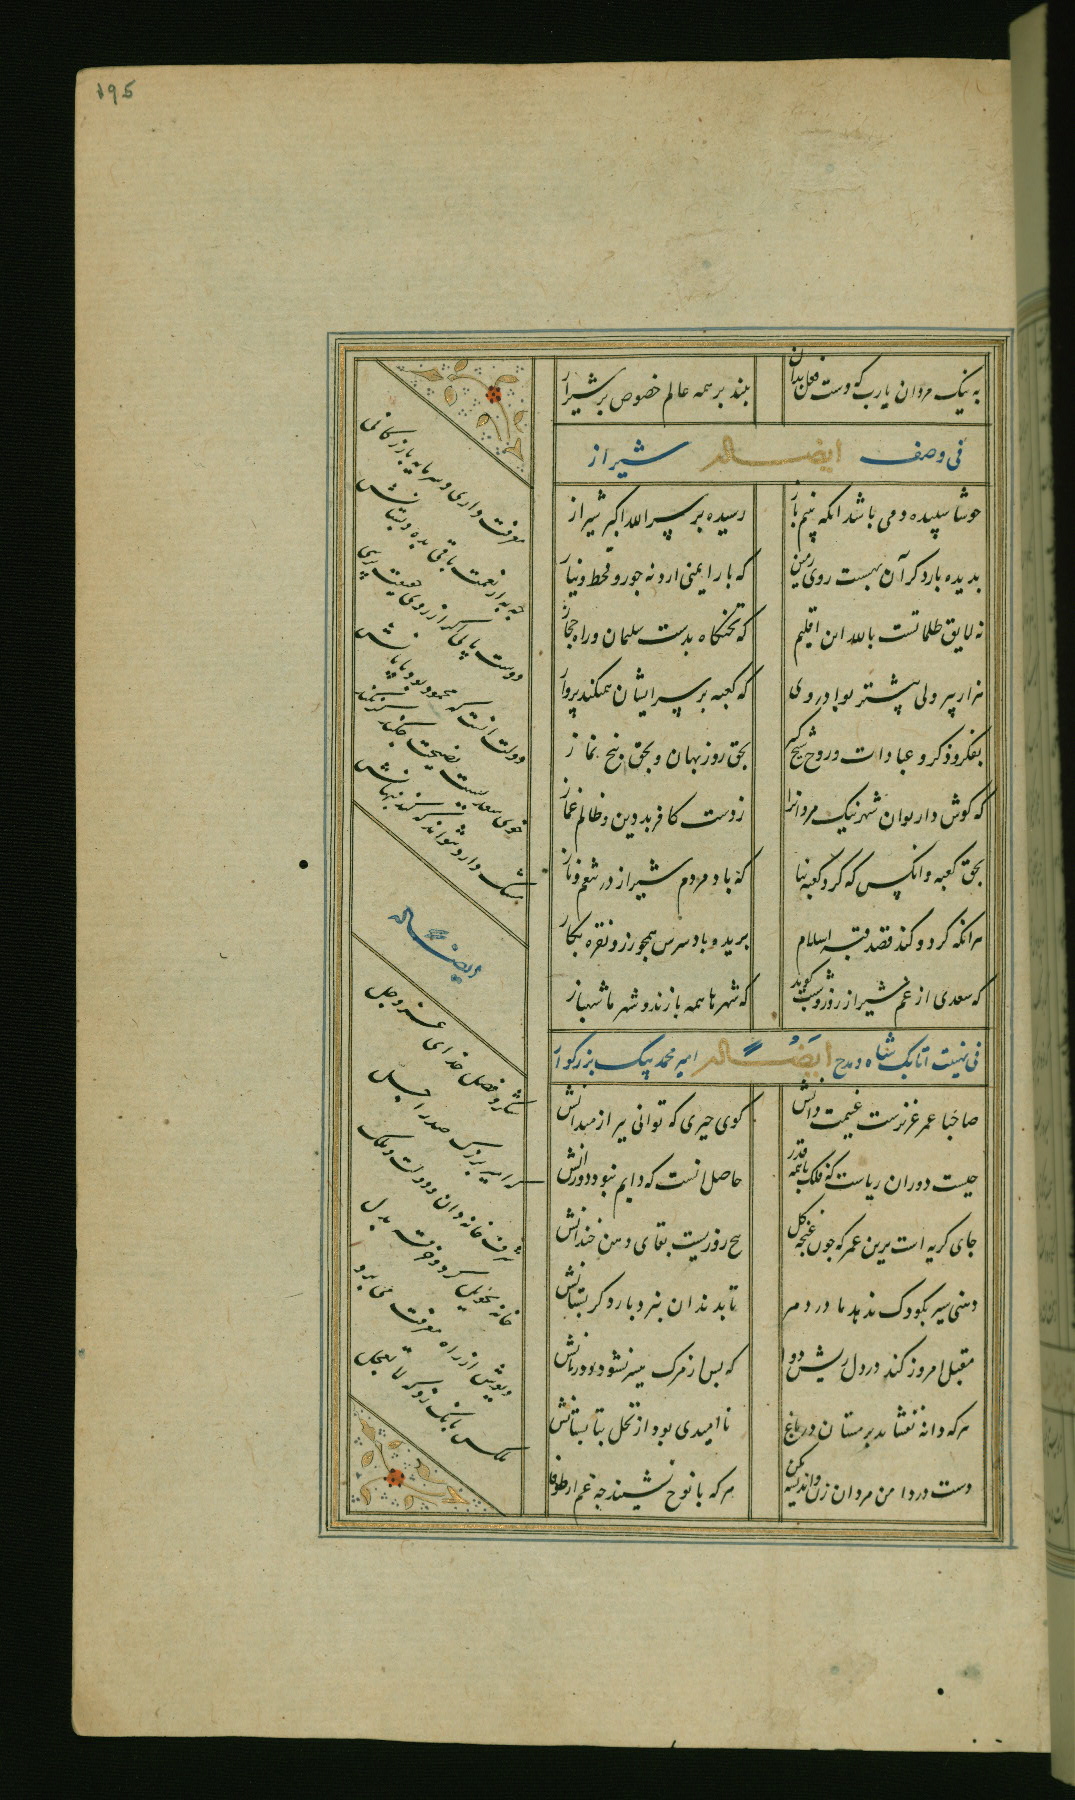 195
به نیک مردان یارب که دست فعل بدان
ببند بر همه عالم خصوص بر شیراز
فی وصف ایضا له شیراز
خوشا سپیده دمی باشد انکه بینم باز
رسیده بر سر الله اکبر شیراز
بدیده بار دکر آن بهشت روی زمین
که بار ایمنی ارد نه جور و قحط و نیاز
نه لایق ظلماتست بالله این اقلیم
که تختکاه بدست سلیمان و راه حجاز
هزار پیر ولی بیشتر بود در وی
که کعبه بر سر ایشان همیکند پرواز
بفکر و ذکر و عبادات و روح شیخ کبیر
بحق روزبهان و بحق پنج نماز
که کوش دار تو ان شهر نیک مردانرا
ز دست کافر بد دین و ظالم غماز
بحق کعبه و انکس که کرد کعبه بنا
که باد مردم شیراز در تنعم و ناز
هر انکه کرد و کند قصد قبه اسلام
بریده باد سرش همچو زر و نقره بکاز
که سعدی از غم شیراز روز و شب کوید
که شهرها همه بازند و شهر ما شهباز
فی تهنیت اتابک شاه و مدح ایضا له امیر محمد بیک بزرکوار
صاحبا عمر عزیزست غنیمت دانش
کوی خیری که توانی ببر از میدانش
چیست دوران ریاست که فلک با همه قدر
حاصل انست که دایم نبود دورانش
جای کریه است برین عمر که چون غنچه کل
پنج روزیست بقای دهن خندانش
دهنی سیر بکودک ندهد مادر دهر
تا بدندان نبرد بار دکر پستانش
مقبل امروز کند درد دل ریش دوا
که پس از مرک میسر نشود درمانش
هر که دانه نفشاند بزمستان در باغ
ناامیدی بود از نخل بتابستانش
دست در دامن مردان زن و اندیشه مکن
هر که با نوح نشیند چه غم از طوفانش
معرفت داری و سرمایه بازرکانی
چه به از نعمت باقی بده و بستانش
دولتت باد و کر از روی حقیقت پرسی
دولت انست که محمود بود پایانش
خوی سعدیست نصیحت چکند کر نکند
مشک دارد نتواند که کند پنهانش
ایضا له
شکر و فضل خدای عز و جل
که امیر بزرک صدر اجل
شرف خاندان و دولت و ملک
خانه تحویل کرد و خرقه بدل
دیوش از راه معرفت می برد
ملکش بانک زد که لا تعجل